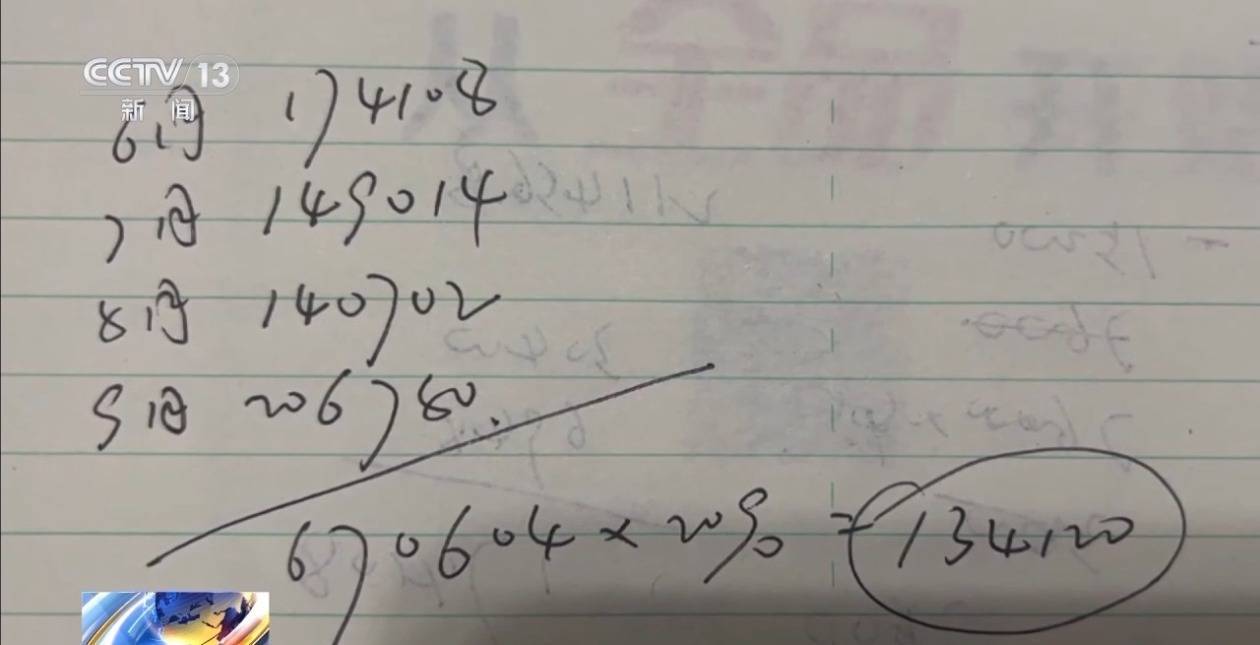 CCTV 13
新闻
6月 174108
7月 149014
8月 140702
9月 206780.
670604 × 20% = 134120